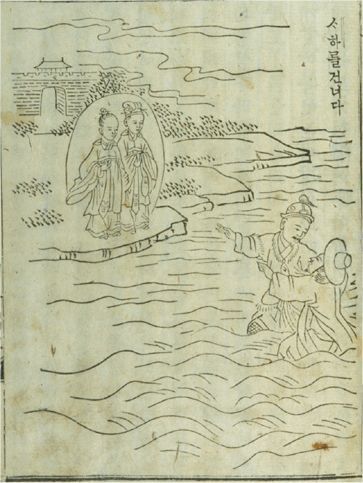 ᄉᆞ하를건너다